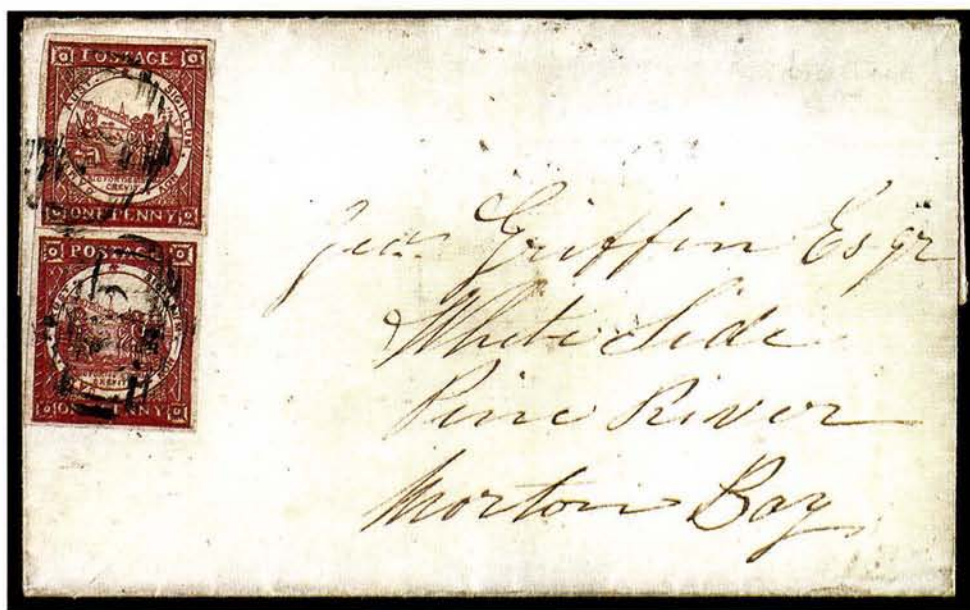 POSTAGE
SIGILLUM
ONE PENNY
POSTAGE
ONE PENNY
Geo. Griffin Esqr
White Side
Pine River
Morton Bay